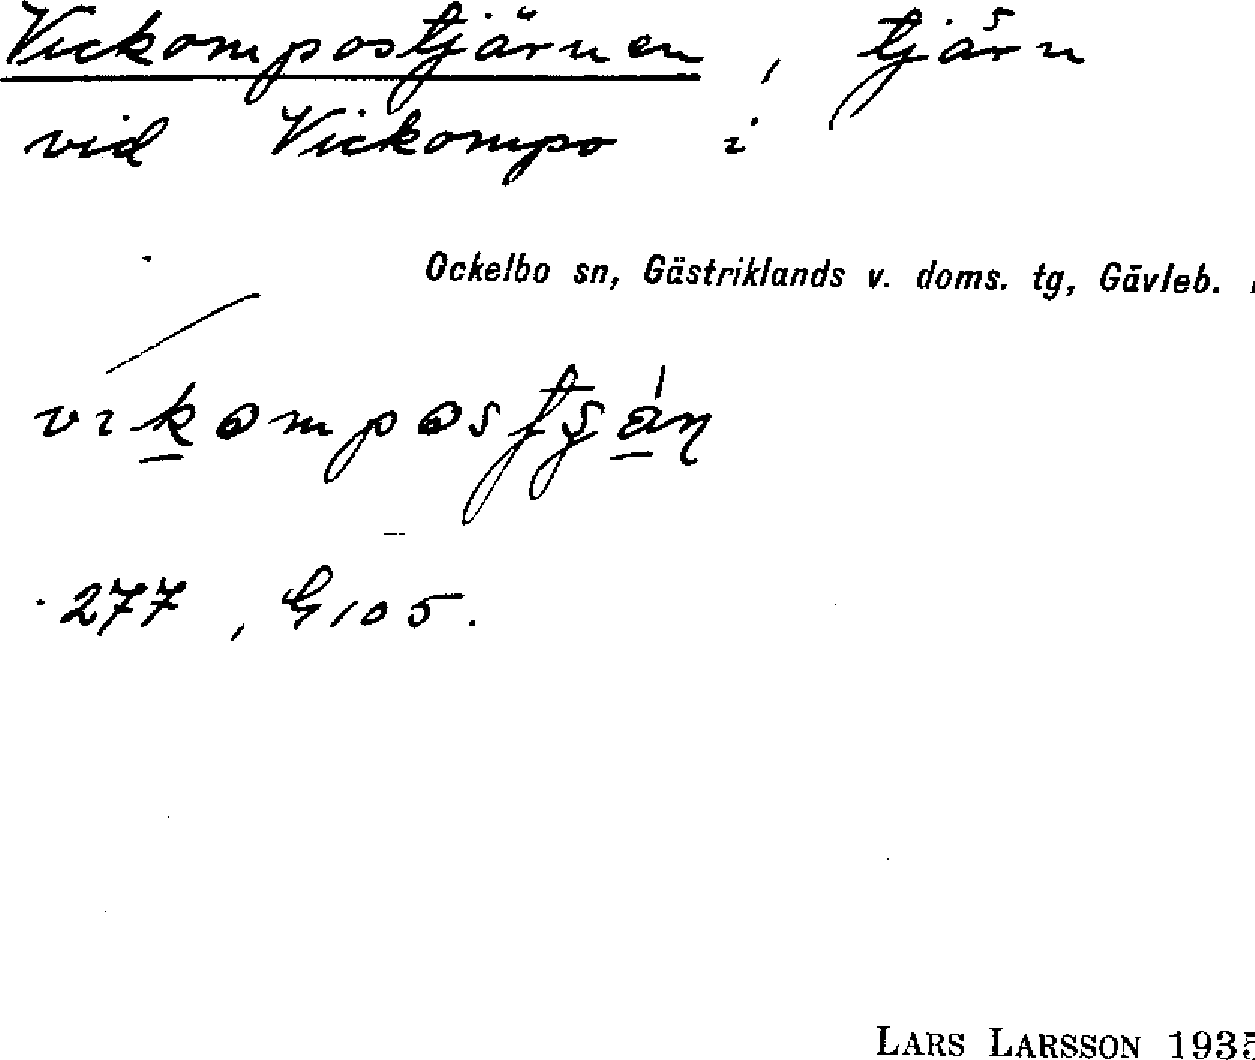 Vickompostjärnen, tjärn
vid Vickompo i
Ockelbo sn, Gästriklands v. doms. tg, Gävleb.
277, G105.
LARS LARSSON 1935